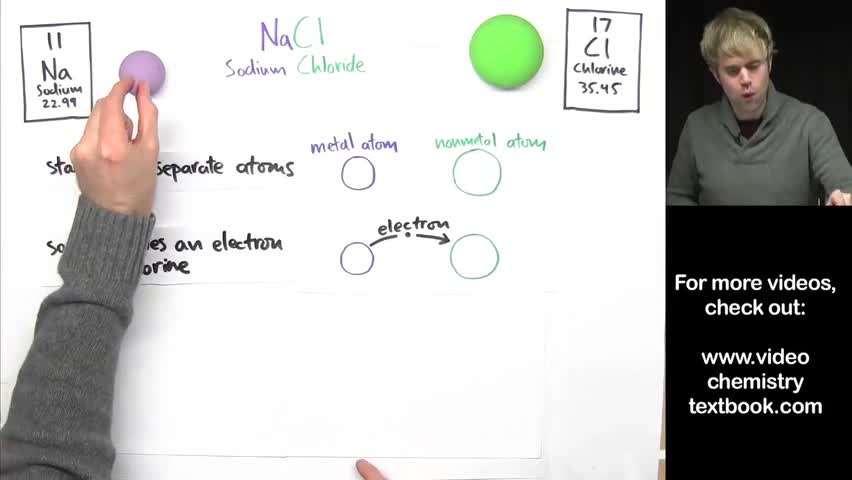 11
Na
Sodium
22.99
NaCl
Sodium Chloride
17
Cl
Chlorine
35.45
metal atom
nonmetal atom
separate atoms
electron
an electron
For more videos,
check out:
www.video
chemistry
textbook.com